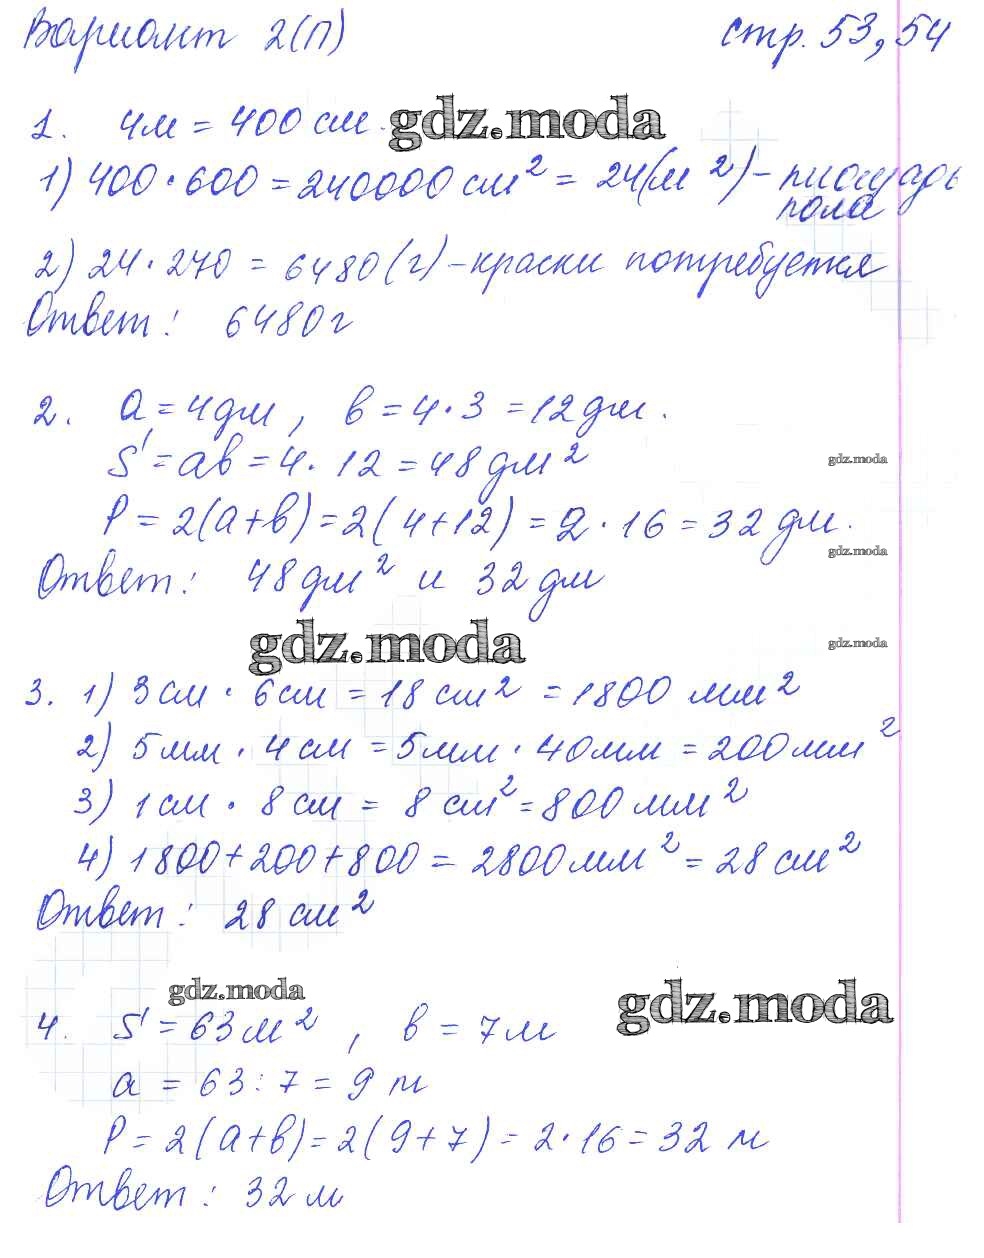 Вариант 2(П) стр. 53, 54
1. 4м = 400 см. gdz.moda
1) 400 · 600 = 240000 см² = 24(м²) - площадь
пола
2) 24 · 270 = 6480 (г) - краски потребуется
Ответ: 6480 г
2. a = 4дм, b = 4 · 3 = 12дм.
S = ab = 4 · 12 = 48 дм²
gdz.moda
P = 2(a+b) = 2(4+12) = 2 · 16 = 32 дм.
gdz.moda
Ответ: 48 дм² и 32 дм
gdz.moda
gdz.moda
3. 1) 3 см · 6 см = 18 см² = 1800 мм²
2) 5 мм · 4 см = 5 мм · 40 мм = 200 мм²
3) 1 см · 8 см = 8 см² = 800 мм²
4) 1800 + 200 + 800 = 2800 мм² = 28 см²
Ответ: 28 см²
gdz.moda
gdz.moda
4. S = 63 м², b = 7 м
a = 63 : 7 = 9 м
P = 2(a+b) = 2(9+7) = 2 · 16 = 32 м
Ответ: 32 м